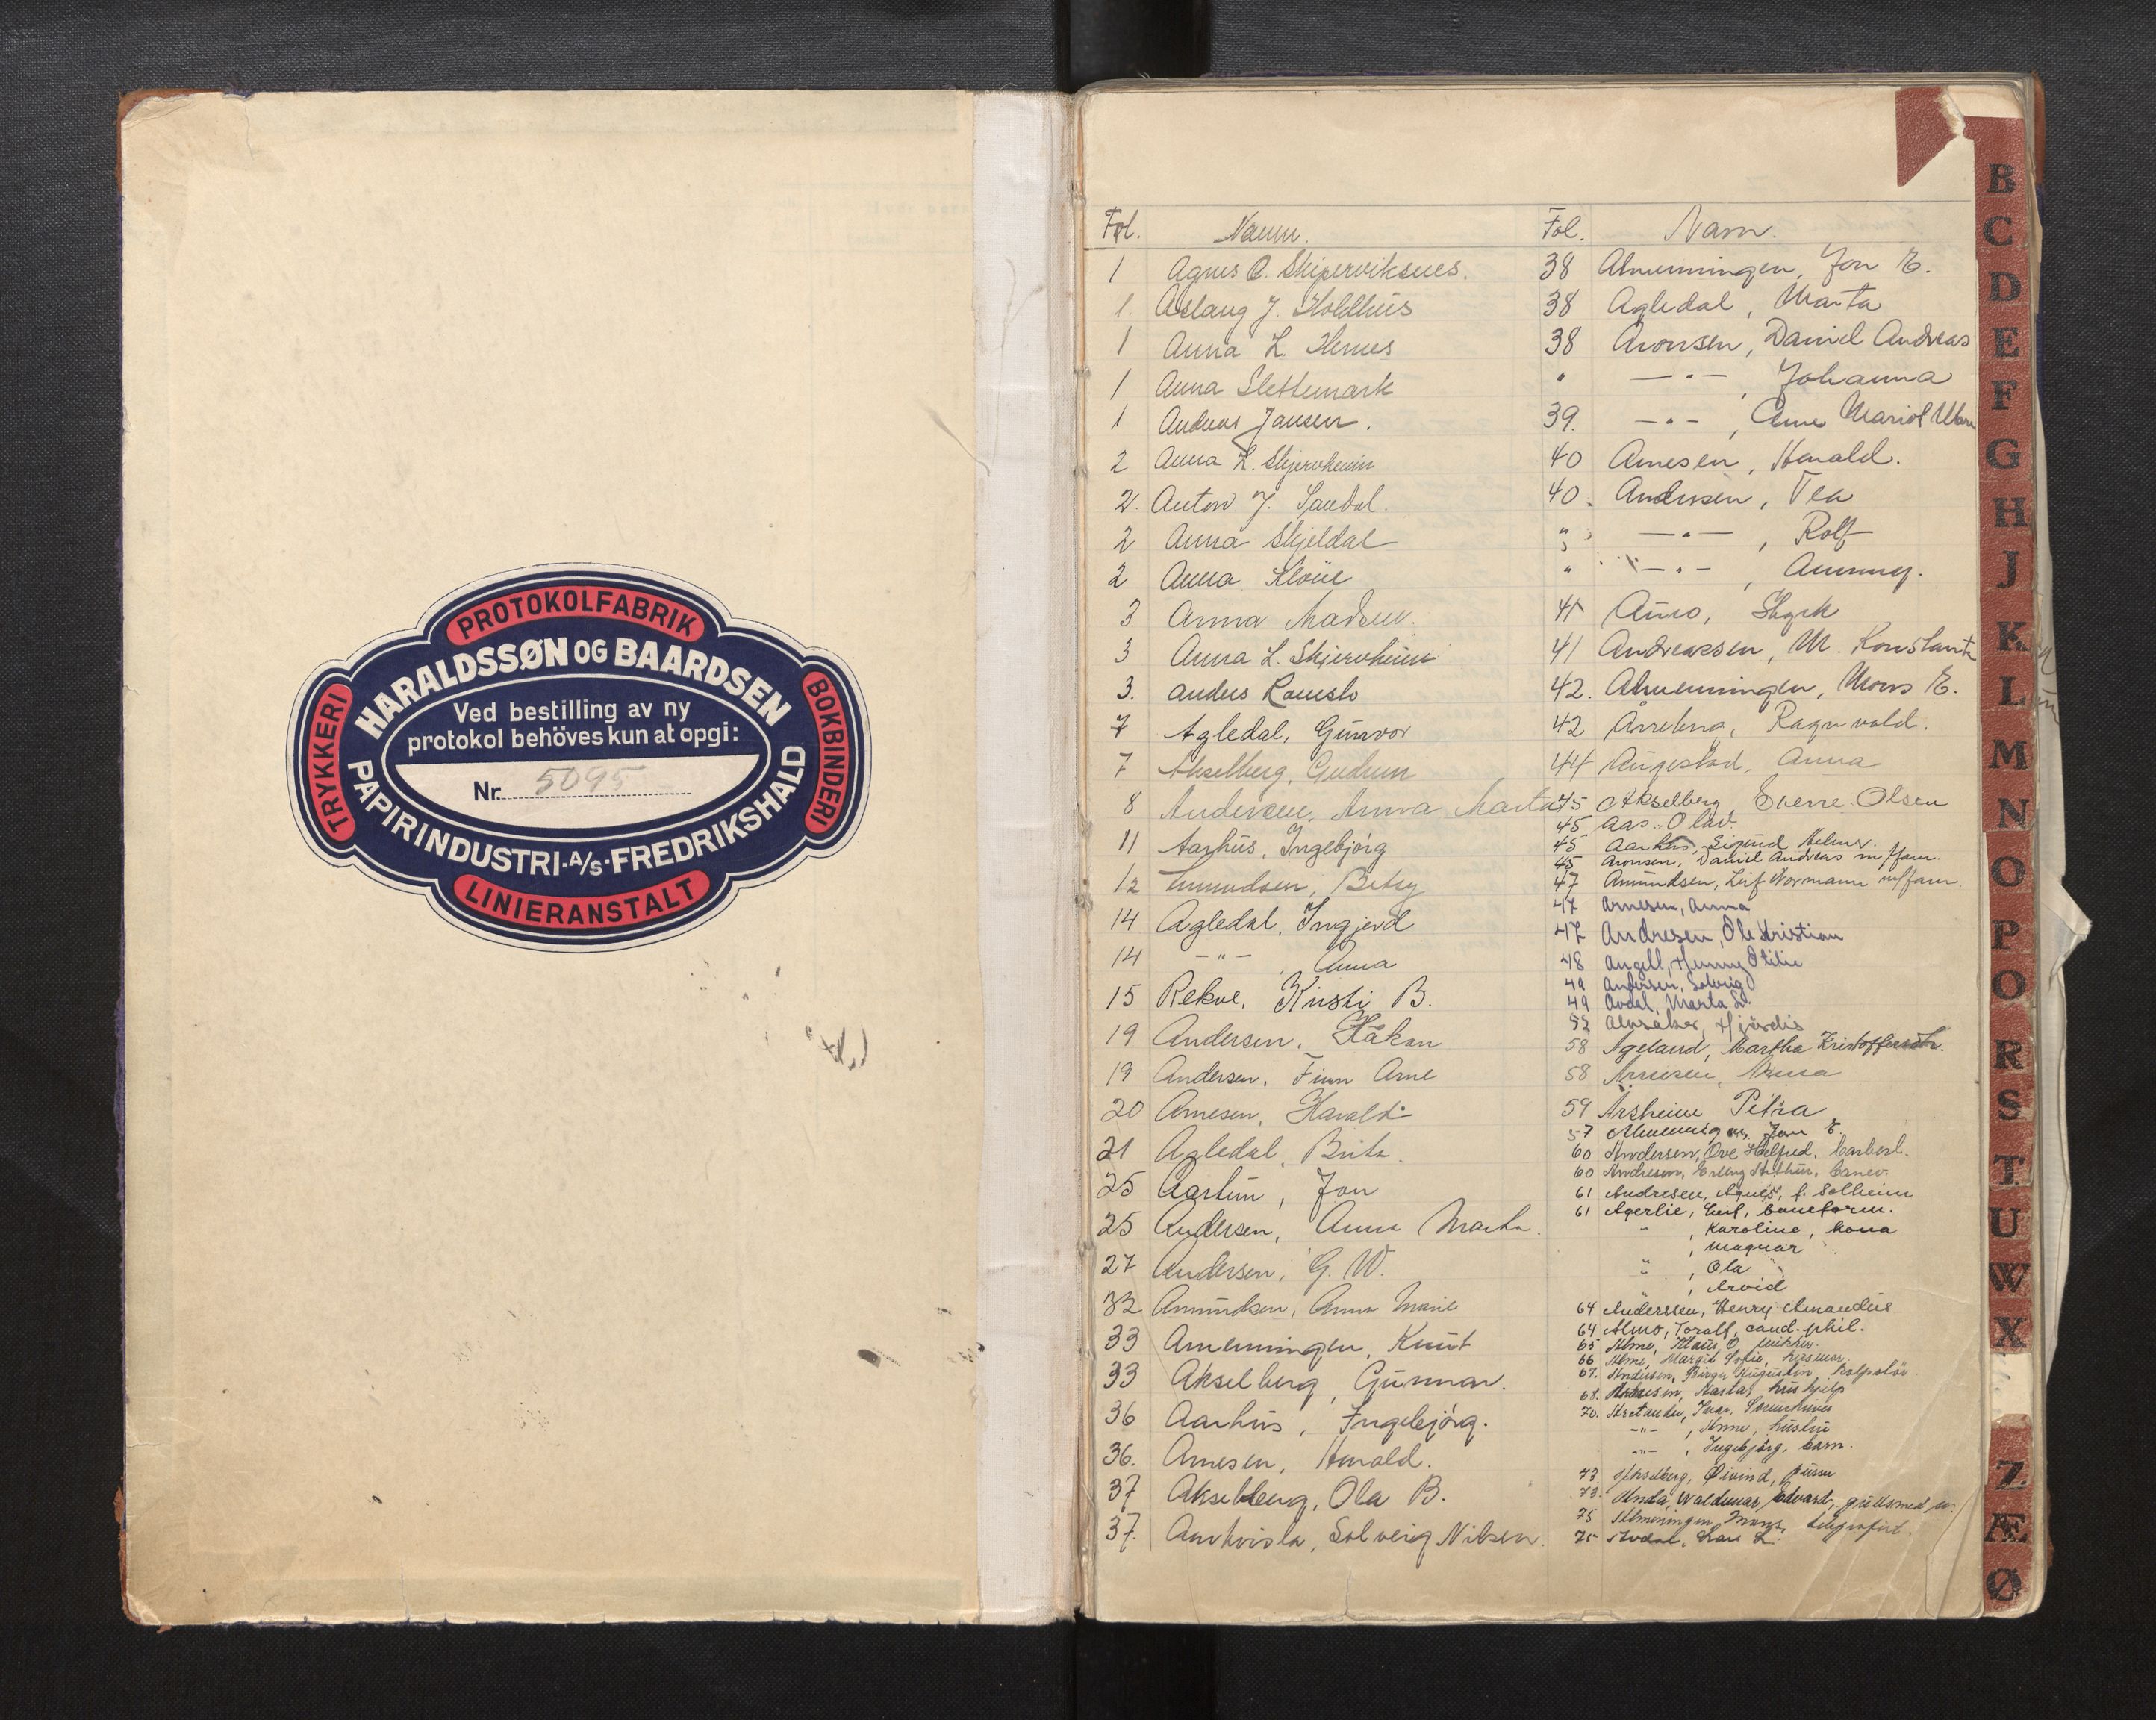 PROTOKOLFABRIK
HARALDSSØN OG BAARDSEN
TRYKKERI
BOKBINDERI
Ved bestilling av ny
protokol behöves kun at opgi:
Nr. 5095
PAPIRINDUSTRI-A/S-FREDRIKSHALD
LINIERANSTALT
Fol. Namn.
1 Agnes C. Skjerviksnes.
1. Aslaug J. Holdhus
1 Anna L. Hernes
1 Anna Slettemark
1 Andreas Jansen.
2 Anna L. Skjervheim
2. Anton J. Sandal.
2 Anna Skjeldal
2 Anna Kløve
3 Anna Madsen.
3 Anna L. Skjervheim
3. Anders Ramslo
7 Agledal, Gunvor
7 Akselberg, Gudrun
8 Andersen, Anna Marta
11 Aarhus, Ingebjørg
12 Amundsen, Betsy
14 Agledal, Ingjerd
14 -"- , Anna
15 Rekve, Kristi B.
19 Andersen, Håkon
19 Andersen, Finn Arne
20 Arnesen, Harald
21 Agledal, Brita.
25 Aarhus, Jon
25 Andersen, Anna Marta.
27 Andersen, G. W.
32 Amundsen, Anna Marie
33 Almenningen, Knut
33 Akselberg, Gunnar.
36 Aarhus, Ingebjørg.
36. Arnesen, Harald.
37 Akselberg, Ola B.
37. Solveig Nilsen.
Fol. Namn.
38 Almenningen, Jon E.
38 Agledal, Marta
38 Aronsen, Daniel Andreas
" —"— , Johanna
39. —"— , Arne
40 Arnesen, Harald.
40. Andersen, Tea
" —"— , Rolf
" —"— ,
41
41 Andreassen, M. Konstanse
42. Almenningen, Mons E.
42 Ragnvald.
44 Augestad, Anna
45 Akselberg, Sverre Olsen
45 Aas, Olav.
45 Aarhus, Sigurd Helmer.
45 Aronsen, Daniel Andreas m/fam.
47 Amundsen, Leif Normann m/fam.
47 Arnesen, Anna
47 Andresen, Ole Kristian
48 Angell, Henny Otilie
49 Andersen, Solveig
49 Avdal, Marta L.
52 Alvsåker, Hjørdis
58 Ageland, Martha Kristoffersdtr.
58 Arnesen, Anna
59 Årsheim Petra
57 Almenningen, Jon E.
60 Andersen, Ove
60 Andresen, Erling Arthur,
61 Andresen, Agnes, f. Solheim
61 Agerlie, Leif, baneform.
" , Karoline, kona
, Magnar
" , Ola
" , Arvid
64 Anderssen, Henry Amandus
64 Almo, Toralf, cand. phil.
65 Alme, Klaus O.
66 Alme, Margit Sofie, husmor.
67. Andersen, Birger Augustin,
68. Arnesen, Kasta, hushjelp
70. Ivar,
-"- , Anna, hustru
-"- , Ingebjørg, barn.
73. Akselberg, Øivind,
73. Anda, Waldemar Edvart, gullsmed
75 Almenningen, Mons, telegrafist.
75 Avdal, Lars L.
B
C
D
E
F
G
H
J
K
L
M
N
O
P
O
R
S
T
U
W
X
Z
Æ
Ø